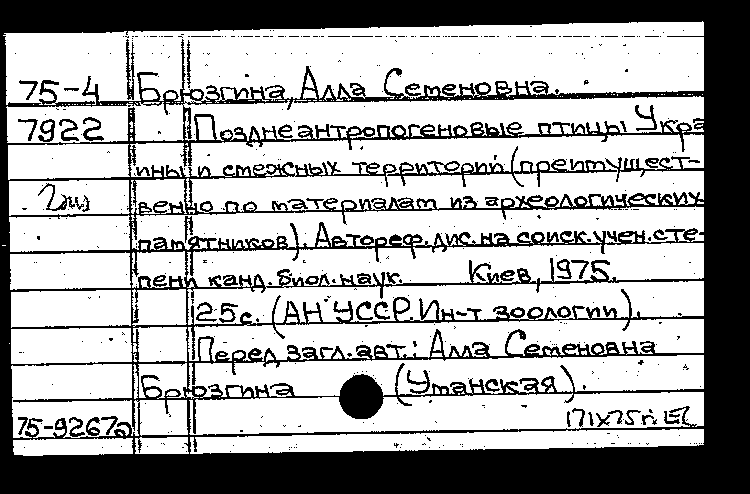 75-4 Брюзгина, Алла Семеновна.
7922 Позднеантропогеновые птицы Укра
ины и смежных территорий (преимущест-
венно по материалам из археологических
памятников). Автореф. дис. на соиск. учен. сте-
пени канд. биол. наук. Киев, 1975.
25 с. (АН УССР. Ин-т зоологии).
Перед загл. авт.: Алла Семеновна
Брюзгина (Уманская).
75-9267а